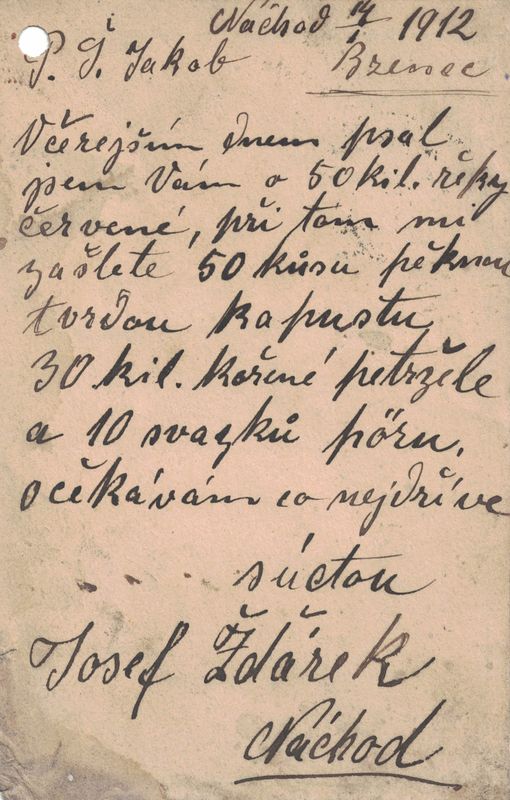 Náchod 14/1 1912
P. Š. Jakob Bzenec
Včerejším dnem psal
jsem Vám o 50 kil. řěpy
červené, při tom mi
zašlete 50 kůsu pěknou
tvrdou kapustu
30 kil. kořené petržele
a 10 svazků pöru,
očěkávám co nejdříve
súctou
Josef Ždářek
Náchod